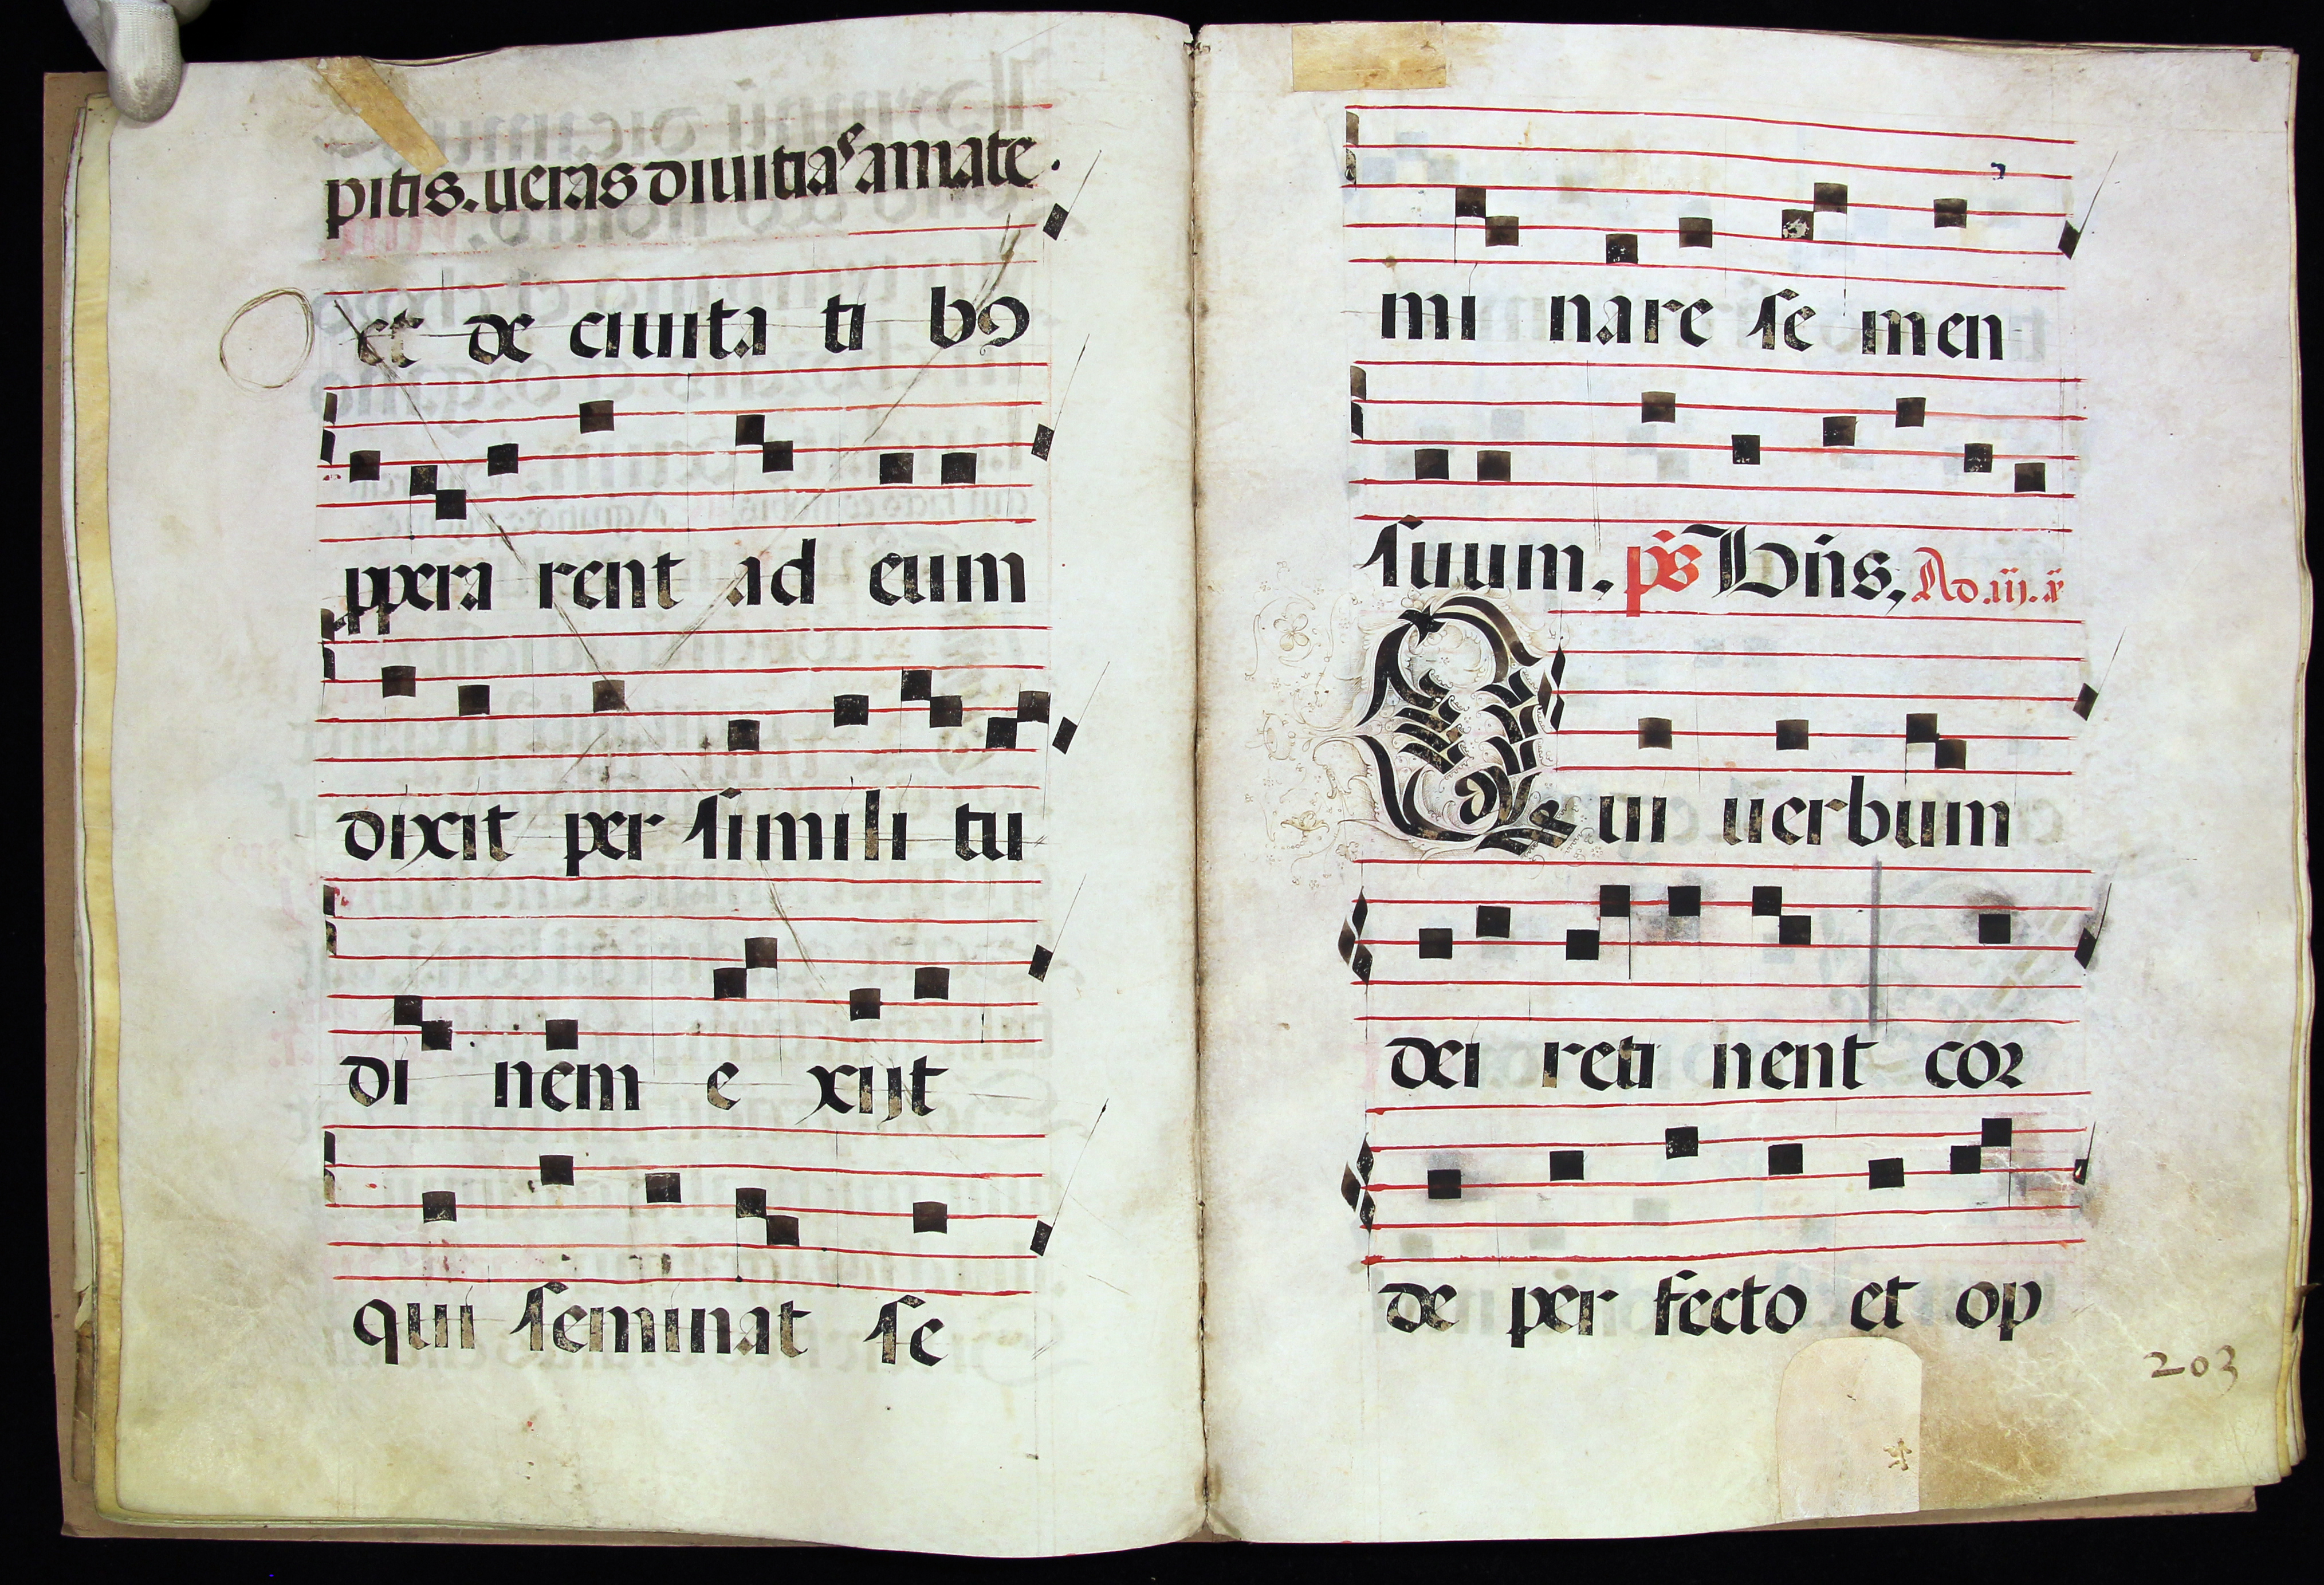 pitis. ueras diuitias amate.
et de ciuita ti bꝰ
ppera rent ad eum
dixit per simili tu
di nem e xijt
qui seminat se
mi nare se men
suum. ps Dñs, Ad .iij. ã
Qui uerbum
dei reti nent cor
de per fecto et op
203